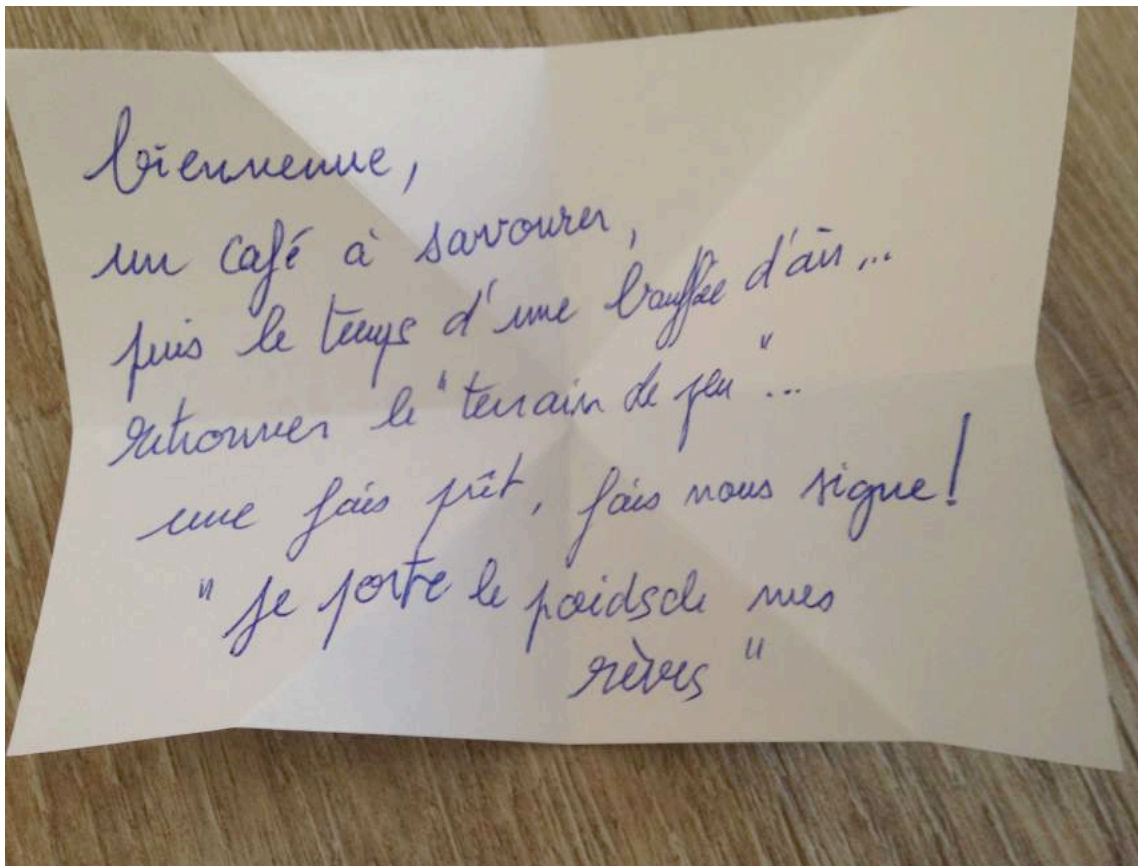 bienvenue,
un café à savourer,
puis le temps d'une bouffée d'air...
retrouver le "terrain de jeu"...
une fois prêt, fais nous signe!
"je porte le poids de mes
rêves"